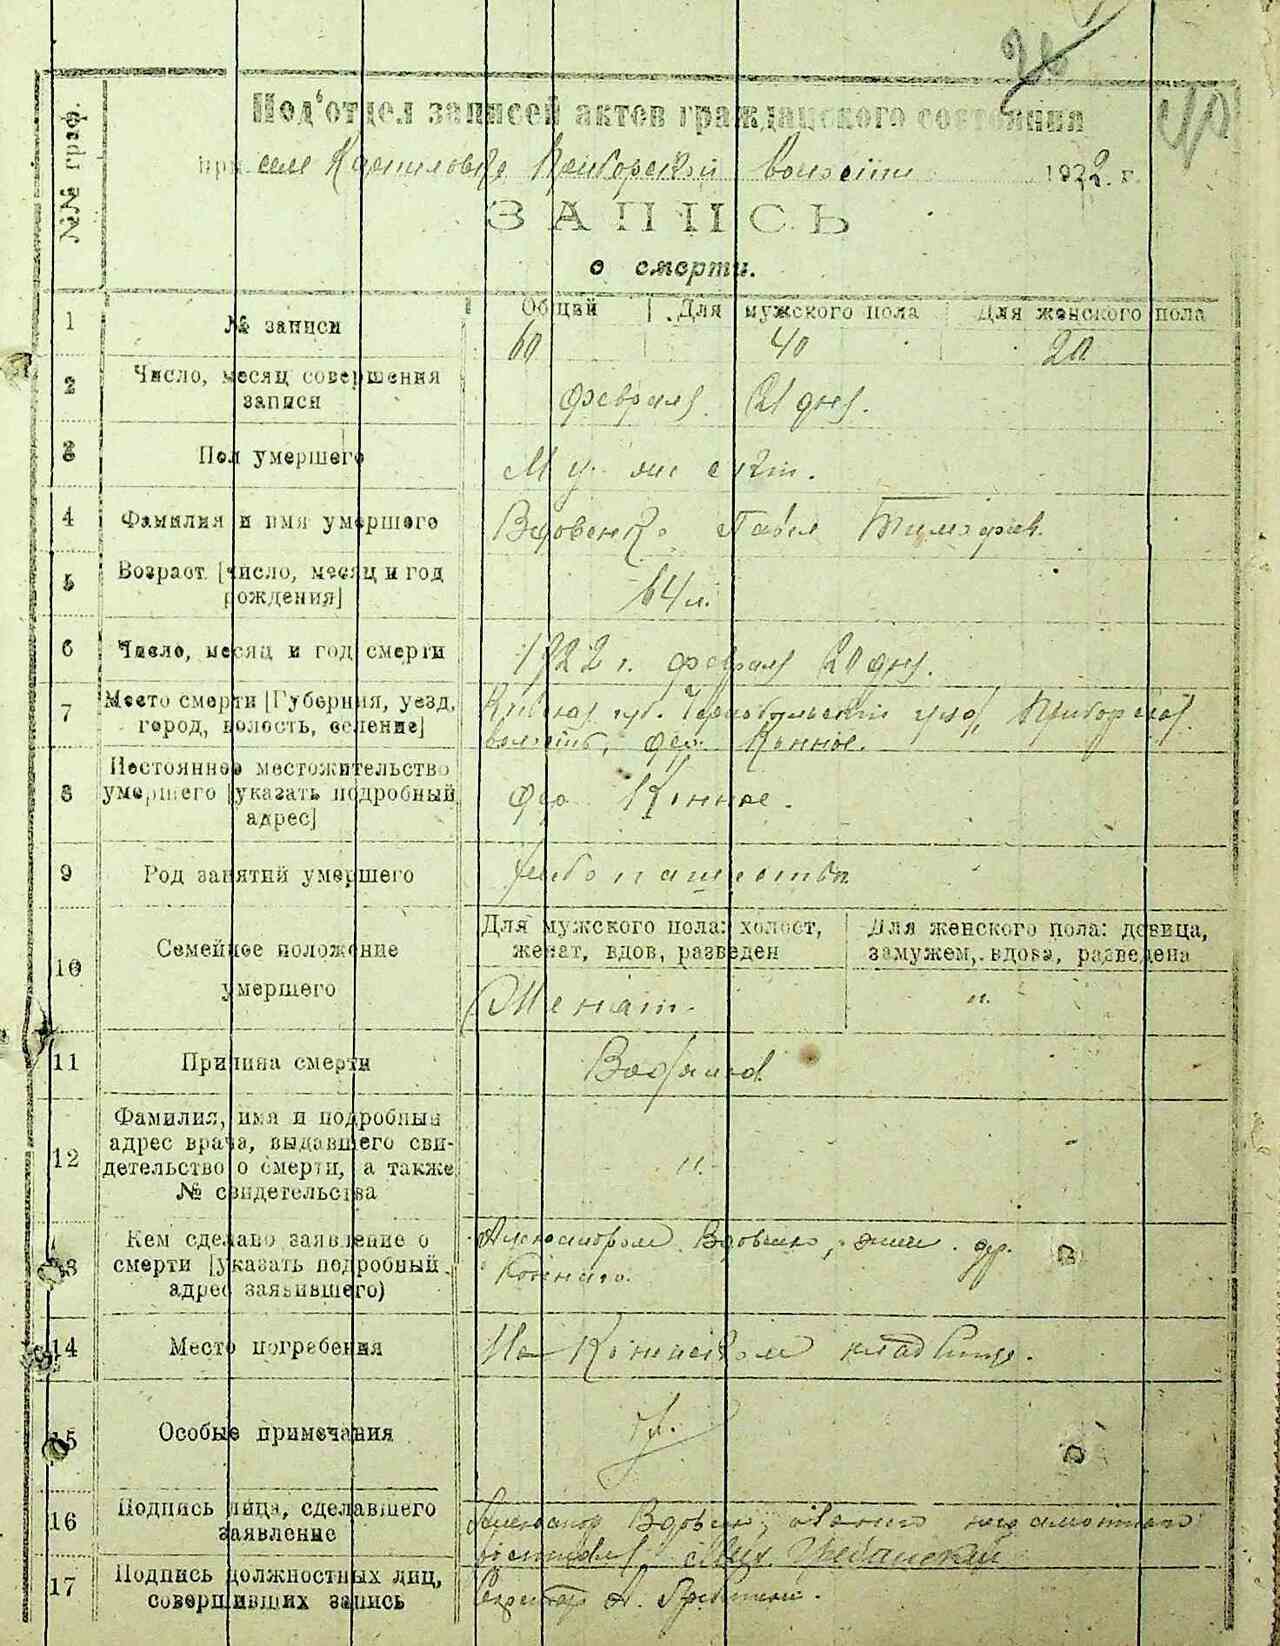 28
40
№№ граф.
Под'отдел записей актов гражданского состояния
при селе Волости 1922 г.
ЗАПИСЬ
о смерти.
1 № записи Общей Для мужского пола Для женского пола
60 40 20
2 Число, месяц совершения записи
февраля 21 дня.
3 Пол умершего
Мужск
4 Фамилия и имя умершого
Вдовенко Павел Тимофеев.
5 Возраст [число, месяц и год рождения]
64 л.
6 Число, месяц и год смерти
1922 г. февраля 20 дня.
7 Место смерти [Губерния, уезд, город, волость, селение]
Киевская губ. Чернобыльский уезд, Приборская
волость, дер. Конное.
8 Постоянное местожительство умершего [указать подробный адрес]
дер. Конное.
9 Род занятий умершего
10 Семейное положение умершего
Для мужского пола: холост, женат, вдов, разведен
Для женского пола: девица, замужем, вдова, разведена
Женат. "
11 Причина смерти
12 Фамилия, имя и подробный адрес врача, выдавшего свидетельство о смерти, а также № свидетельства
"
13 Кем сделано заявление о смерти [указать подробный адрес заявившего)
Александром Вдовенко, жит. др.
Конного.
14 Место погребения
На Конском кладбище.
15 Особые примечания
16 Подпись лица, сделавшего заявление
Александр Вдовенко, неграмотного
Мих.
17 Подпись должностных лиц, совершивших запись
Секретарь